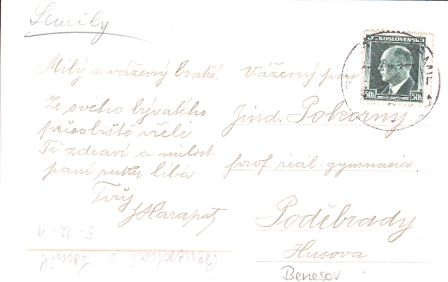 Semily
Milý a vážený bratře.
Ze svého bývalého
působiště vřele
Tě zdraví a milost.
paní ruku líbá
Tvůj
JHarapat
Vážený pan
Jind. Pokorný
prof. reál. gymnasia
Poděbrady
Husova
Benesov
ČESKOSLOVENSKO
50h 50h
5-12-1
Semil